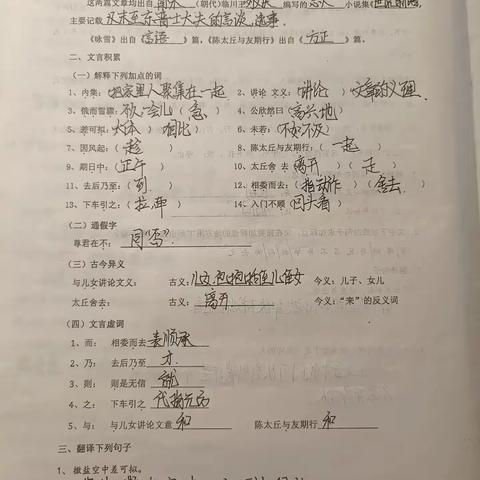 这两篇文章均出自 南宋 (朝代)临川王 刘义庆 编写的 志人 小说集《世说新语》,
主要记载 汉末至东晋士大夫的言谈、逸事.
《咏雪》出自《言语》篇,《陈太丘与友期行》出自《方正》篇。
二、文言积累
(一)解释下列加点的词
1、内集:(把家里人聚集在一起) 2、讲论 文义:(讲论)(文章的义理.)
3、俄而雪骤:(不久,一会儿)(急) 4、公欣然曰(高兴地)
5、差可拟:(大体)(相比) 6、未若:(不如不及)
7、因风起:(趁) 8、陈太丘与友期行:(一起)
9、期日中:(正午) 10、太丘舍去(离开)(走)
11、去后乃至:(到) 12、相委而去:(指动作)(舍去.)
13、下车引之:(拉,牵) 14、入门不顾(回头看)
(二)通假字
尊君在不: 同“否”.
(三)古今异义
与儿女讲论文义: 古义: 今义:儿子、女儿
太丘舍去: 古义: 离开 今义:“来”的反义词
(四)文言虚词
1、而: 相委而去 表顺承
2、乃: 去后乃至 才.
3、则: 则是无信 就
4、之: 下车引之 代指元方
5、与: 与儿女讲论文意 和 陈太丘与友期行 和
三、翻译下列句子
1、撒盐空中差可拟。